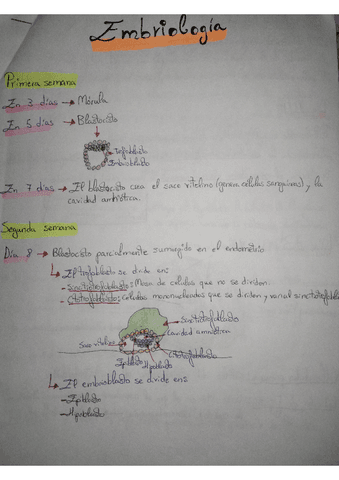 Embriología
Primera semana
En 3 días → Mórula
En 5 días → Blastocito
Trofoblasto
Embrioblasto
En 7 días → El blastocito crea el saco vitelino (genera células sanguíneas), y la
cavidad amniótica.
Segunda semana
Día 8 → Blastocisto parcialmente sumergido en el endometrio
↳ El trofoblasto se divide en:
- Sincitiotrofoblasto: Masa de células que no se dividen.
- Citotrofoblasto: Células mononucleadas que se dividen y van al sincitiotrofoblasto
Sincitiotrofoblasto
Cavidad amniótica
Saco vitelino
Citotrofoblasto
Epiblasto
Hipoblasto
↳ El embrioblasto se divide en:
- Epiblasto
- Hipoblasto